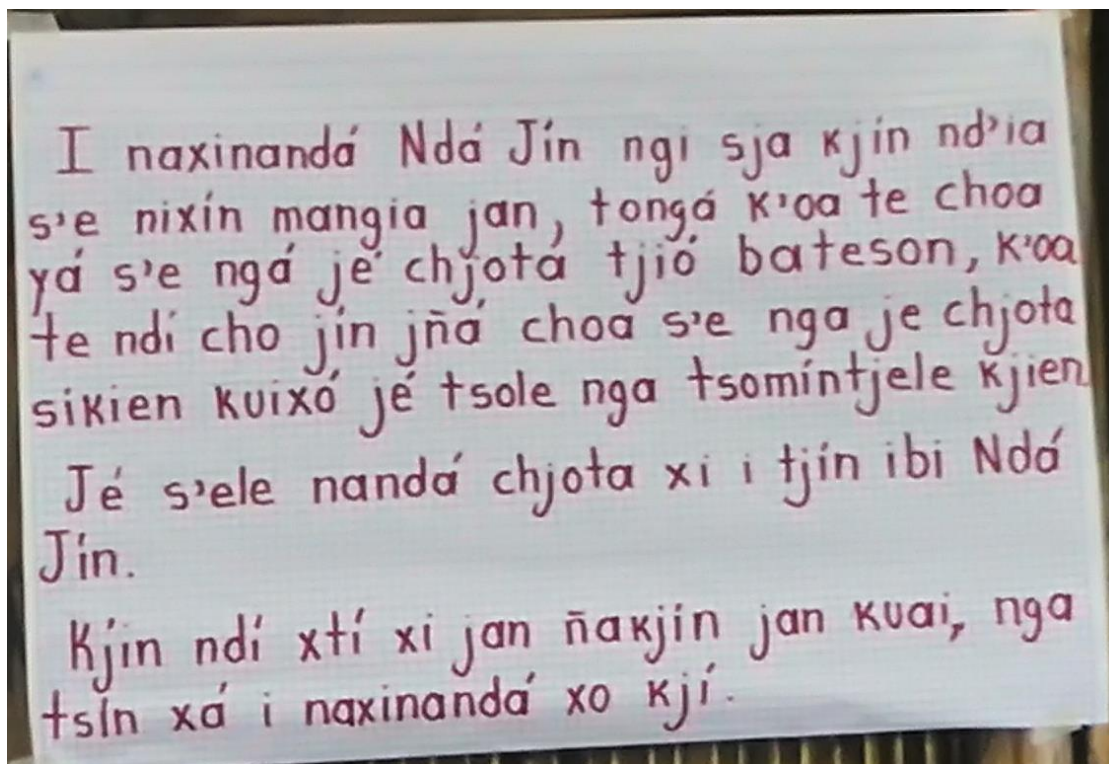 I naxinandá Ndá Jín ngi sja kjín nd'ia
s'e nixín mangia jan, tongá k'oa te choa
yá s'e ngá jé chjotá tjió bateson, k'oa
te ndí cho jín jñá choa s'e nga je chjota
sikien kuixó jé tsole nga tsomíntjele kjien
Jé s'ele nandá chjota xi i tjín ibi Ndá
Jín.
Kjín ndí xtí xi jan ñakjín jan kuai, nga
tsín xá i naxinandá xo kjí.